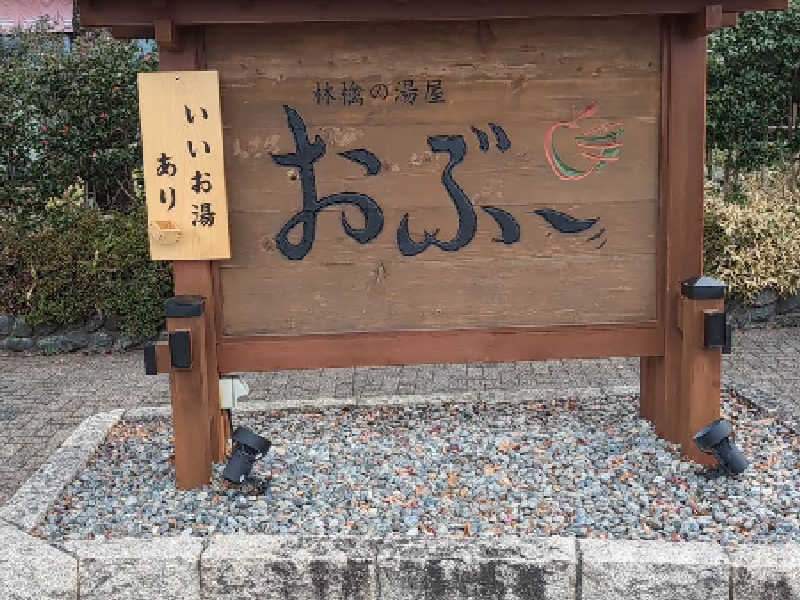 林檎の湯屋
おぶ~
いいお湯
あり